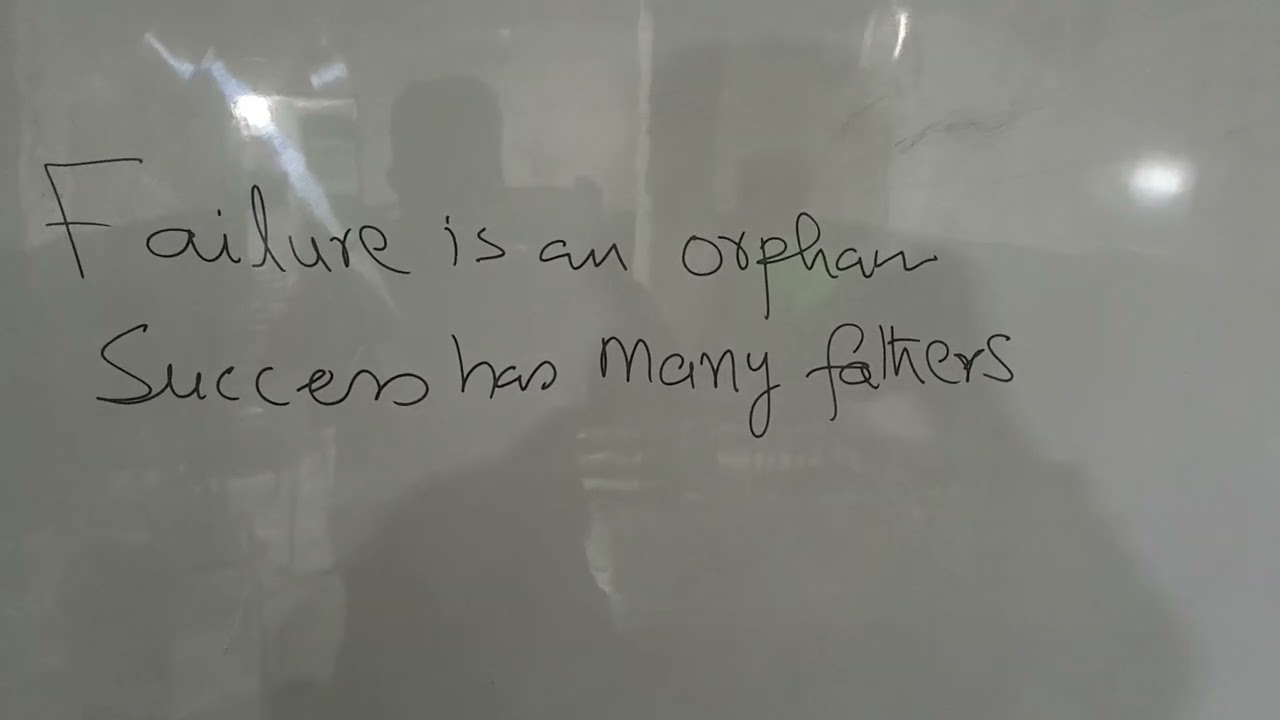 Failure is an orphan
Success has many fathers